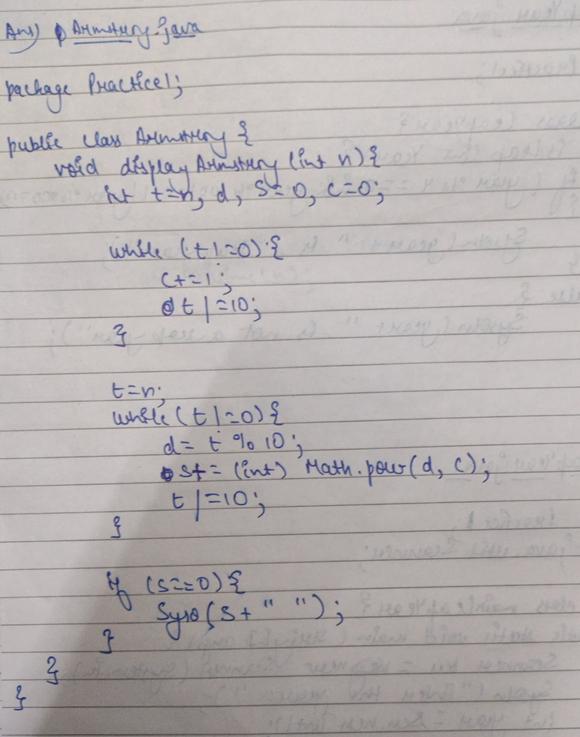 Ans) Armstrong.java
package Practice1;
public class Armstrong {
void displayArmstrong (int n) {
int t=n, d, s=0, c=0;
while (t!=0) {
c+=1;
t/=10;
}
t=n;
while (t!=0) {
d= t % 10;
s+= (int) Math.pow(d, c);
t/=10;
}
if (s==0) {
Syso(s+ " ");
}
}
}